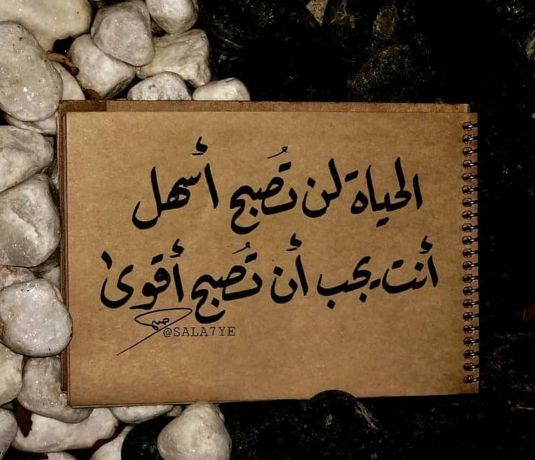 الحياة لن تُصبح أسهل
أنت يجب أن تُصبح أقوى
@SALA7YE